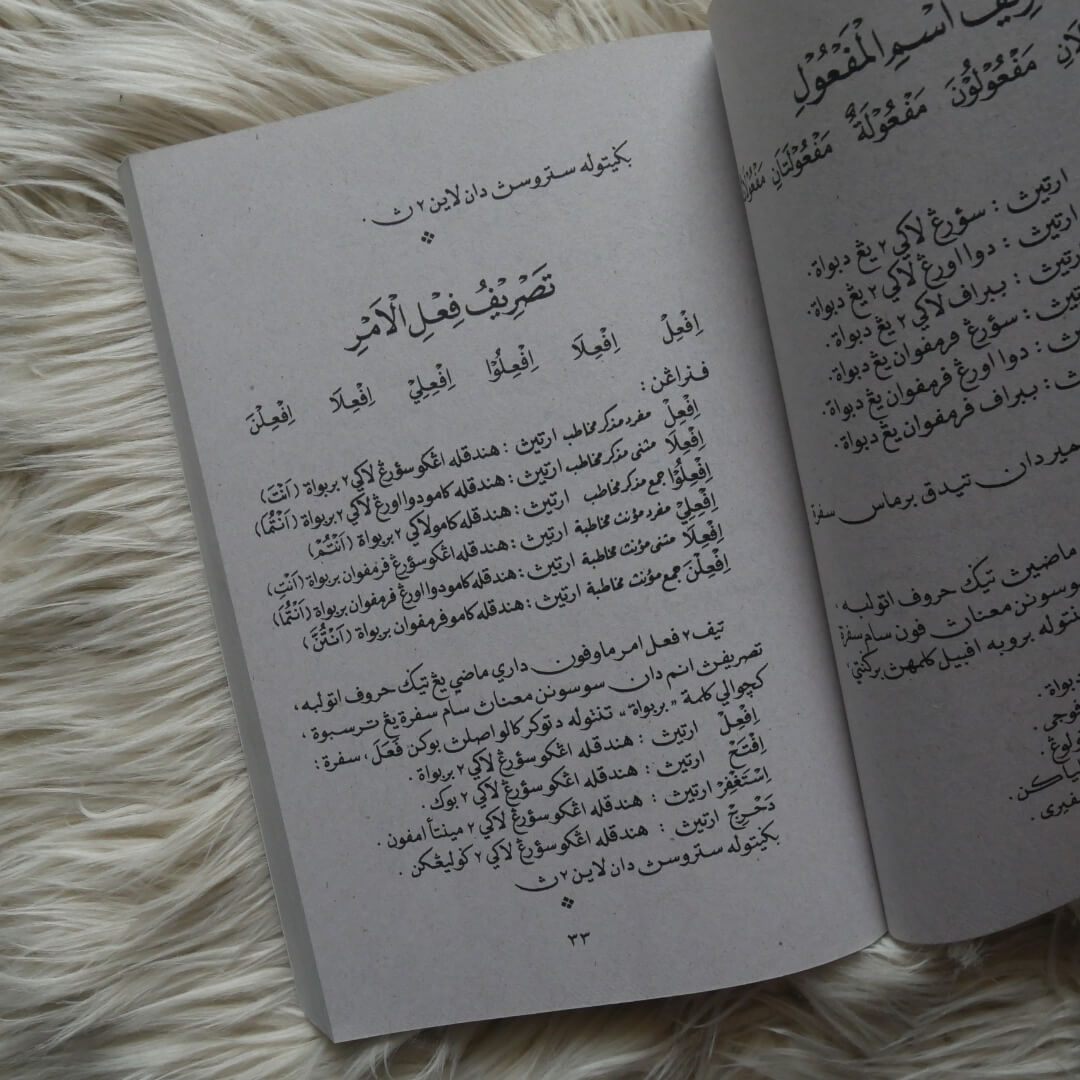 بݢيتوله ستروسڽ دان لاين ٢ ڽ .
تَصْرِيْفُ فِعْلِ الْاَمْرِ
اِفْعِلْ اِفْعِلَا اِفْعِلُوْا اِفْعِلِيْ اِفْعِلَا اِفْعِلْنَ
فنراڠن :
اِفْعِلْ مفرد مذكر مخاطب ارتيڽ : هندقله اڠكو سؤرڠ لاكي ٢ بربواة (اَنْتَ)
اِفْعِلَا مثنى مذكر مخاطب ارتيڽ : هندقله كامو دوا اورڠ لاكي ٢ بربواة (اَنْتُمَا)
اِفْعِلُوْا جمع مذكر مخاطب ارتيڽ : هندقله كامو لاكي ٢ بربواة (اَنْتُمْ)
اِفْعِلِيْ مفرد مؤنث مخاطبة ارتيڽ : هندقله اڠكو سؤرڠ فرمفوان بربواة (اَنْتِ)
اِفْعِلَا مثنى مؤنث مخاطبة ارتيڽ : هندقله كامو دوا اورڠ فرمفوان بربواة (اَنْتُمَا)
اِفْعِلْنَ جمع مؤنث مخاطبة ارتيڽ : هندقله كامو فرمفوان بربواة (اَنْتُنَّ)
تيف ٢ فعل امر ماوفون داري ماضي يڠ تيݢ حروف اتولبه ،
تصريفڽ انم دان سوسونن معناڽ سام سفرة يڠ ترسبوة ،
كچوالي كلمة "بربواة" تنتوله دتوكر كالو اصلڽ بوكن فَعَلَ ، سفرة :
اِفْعِلْ ارتيڽ : هندقله اڠكو سؤرڠ لاكي ٢ بربواة .
اِفْتَحْ ارتيڽ : هندقله اڠكو سؤرڠ لاكي ٢ بوك .
اِسْتَغْفِرْ ارتيڽ : هندقله اڠكو سؤرڠ لاكي ٢ مينتأ امفون .
دَحْرِجْ ارتيڽ : هندقله اڠكو سؤرڠ لاكي ٢ ݢوليڠكن .
بݢيتوله ستروسڽ دان لاين ٢ ڽ
٣٣
اسْمِ الْمَفْعُوْلِ
مَفْعُوْلُوْنَ مَفْعُوْلَةٌ مَفْعُوْلَتَانِ
ارتيڽ : سؤرڠ لاكي ٢ يڠ دبواة .
ارتيڽ : دوا اورڠ لاكي ٢ يڠ دبواة .
: ببراف لاكي ٢ يڠ دبواة .
: سؤرڠ فرمفوان يڠ دبواة .
: دوا اورڠ فرمفوان يڠ دبواة .
: ببراف فرمفوان يڠ دبواة .
دان تيدق برماس سفرة
ماضيڽ تيݢ حروف اتولبه ،
سوسونن معناڽ فون سام سفرة
بروبه افبيل كلمهڽ برݢنتي
دبواة .